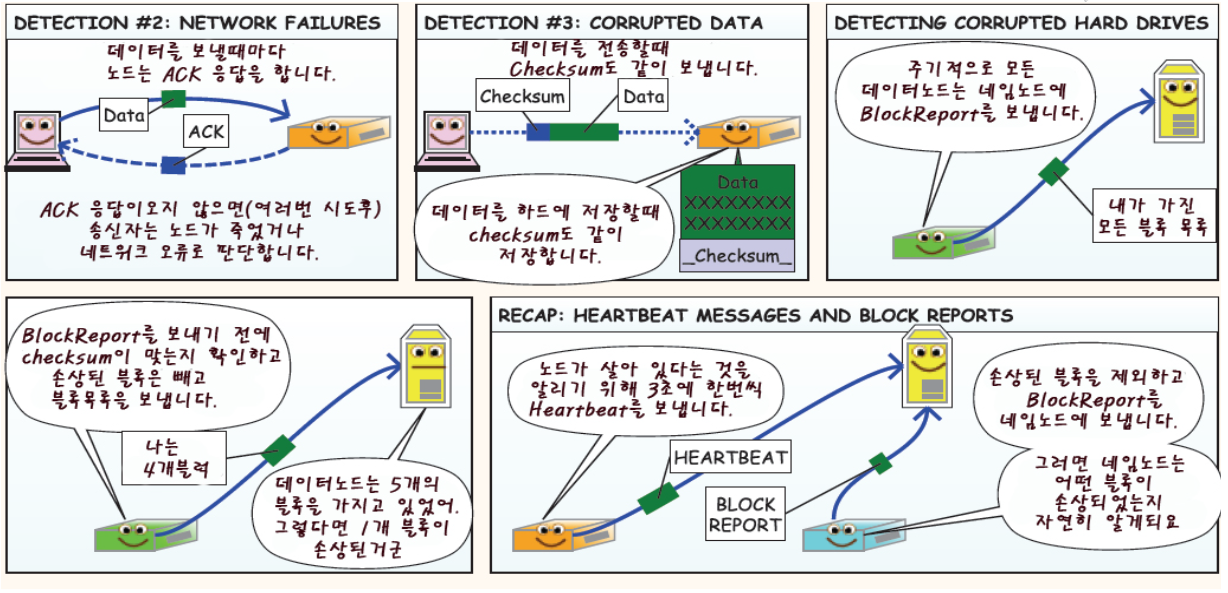 DETECTION #2: NETWORK FAILURES
데이터를 보낼때마다
노드는 ACK 응답을 합니다.
Data
ACK
ACK 응답이오지 않으면(여러번 시도후)
송신자는 노드가 죽었거나
네트워크 오류로 판단합니다.
DETECTION #3: CORRUPTED DATA
데이터를 전송할때
Checksum도 같이 보냅니다.
Checksum
Data
데이터를 하드에 저장할때
checksum도 같이
저장합니다.
Data
XXXXXXXX
XXXXXXXX
_Checksum_
DETECTING CORRUPTED HARD DRIVES
주기적으로 모든
데이터노드는 네임노드에
BlockReport를 보냅니다.
내가 가진
모든 블록 목록
BlockReport를 보내기 전에
checksum이 맞는지 확인하고
손상된 블록은 빼고
블록목록을 보냅니다.
나는
4개블럭
데이터노드는 5개의
블록을 가지고 있었어.
그렇다면 1개 블록이
손상된거군
RECAP: HEARTBEAT MESSAGES AND BLOCK REPORTS
노드가 살아 있다는 것을
알리기 위해 3초에 한번씩
Heartbeat를 보냅니다.
HEARTBEAT
BLOCK
REPORT
손상된 블록을 제외하고
BlockReport를
네임노드에 보냅니다.
그러면 네임노드는
어떤 블록이
손상되었는지
자연히 알게되요